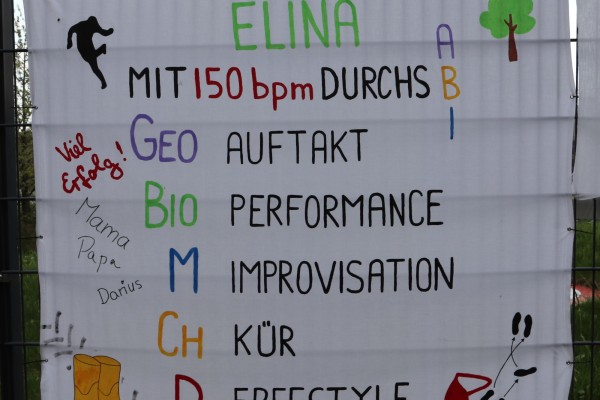 ELINA
MIT 150 bpm DURCHS
ABI
GEO AUFTAKT
Viel
Erfolg!
BIO PERFORMANCE
Mama
Papa
M IMPROVISATION
Darius
CH KÜR
D FREESTYLE